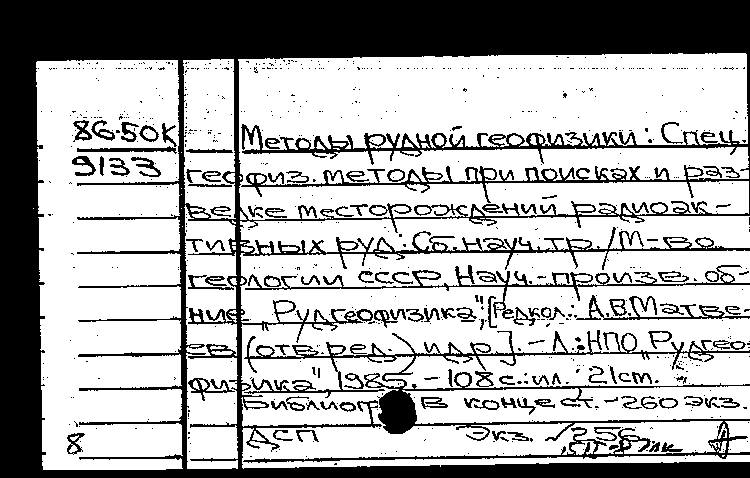 86-50К Методы рудной геофизики: Спец.
9133 геофиз. методы при поисках и раз-
ведке месторождений радиоак-
тивных руд: Сб. науч. тр. / М-во
геологии СССР, Науч.-произв. об-
ние „Рудгеофизика"; [Редкол.: А.В. Матве-
ев (отв. ред.) и др]. – Л.: НПО „Рудгео-
физика", 1985. – 108 с.: ил. 21 см.
Библиогр в конце ст. – 260 экз.
8 ДСП Экз. √256